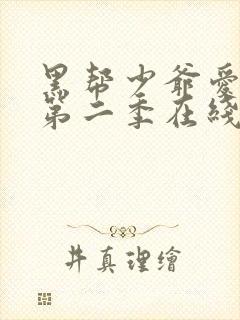 黑帮少爷爱
第二季在线
井真理繪